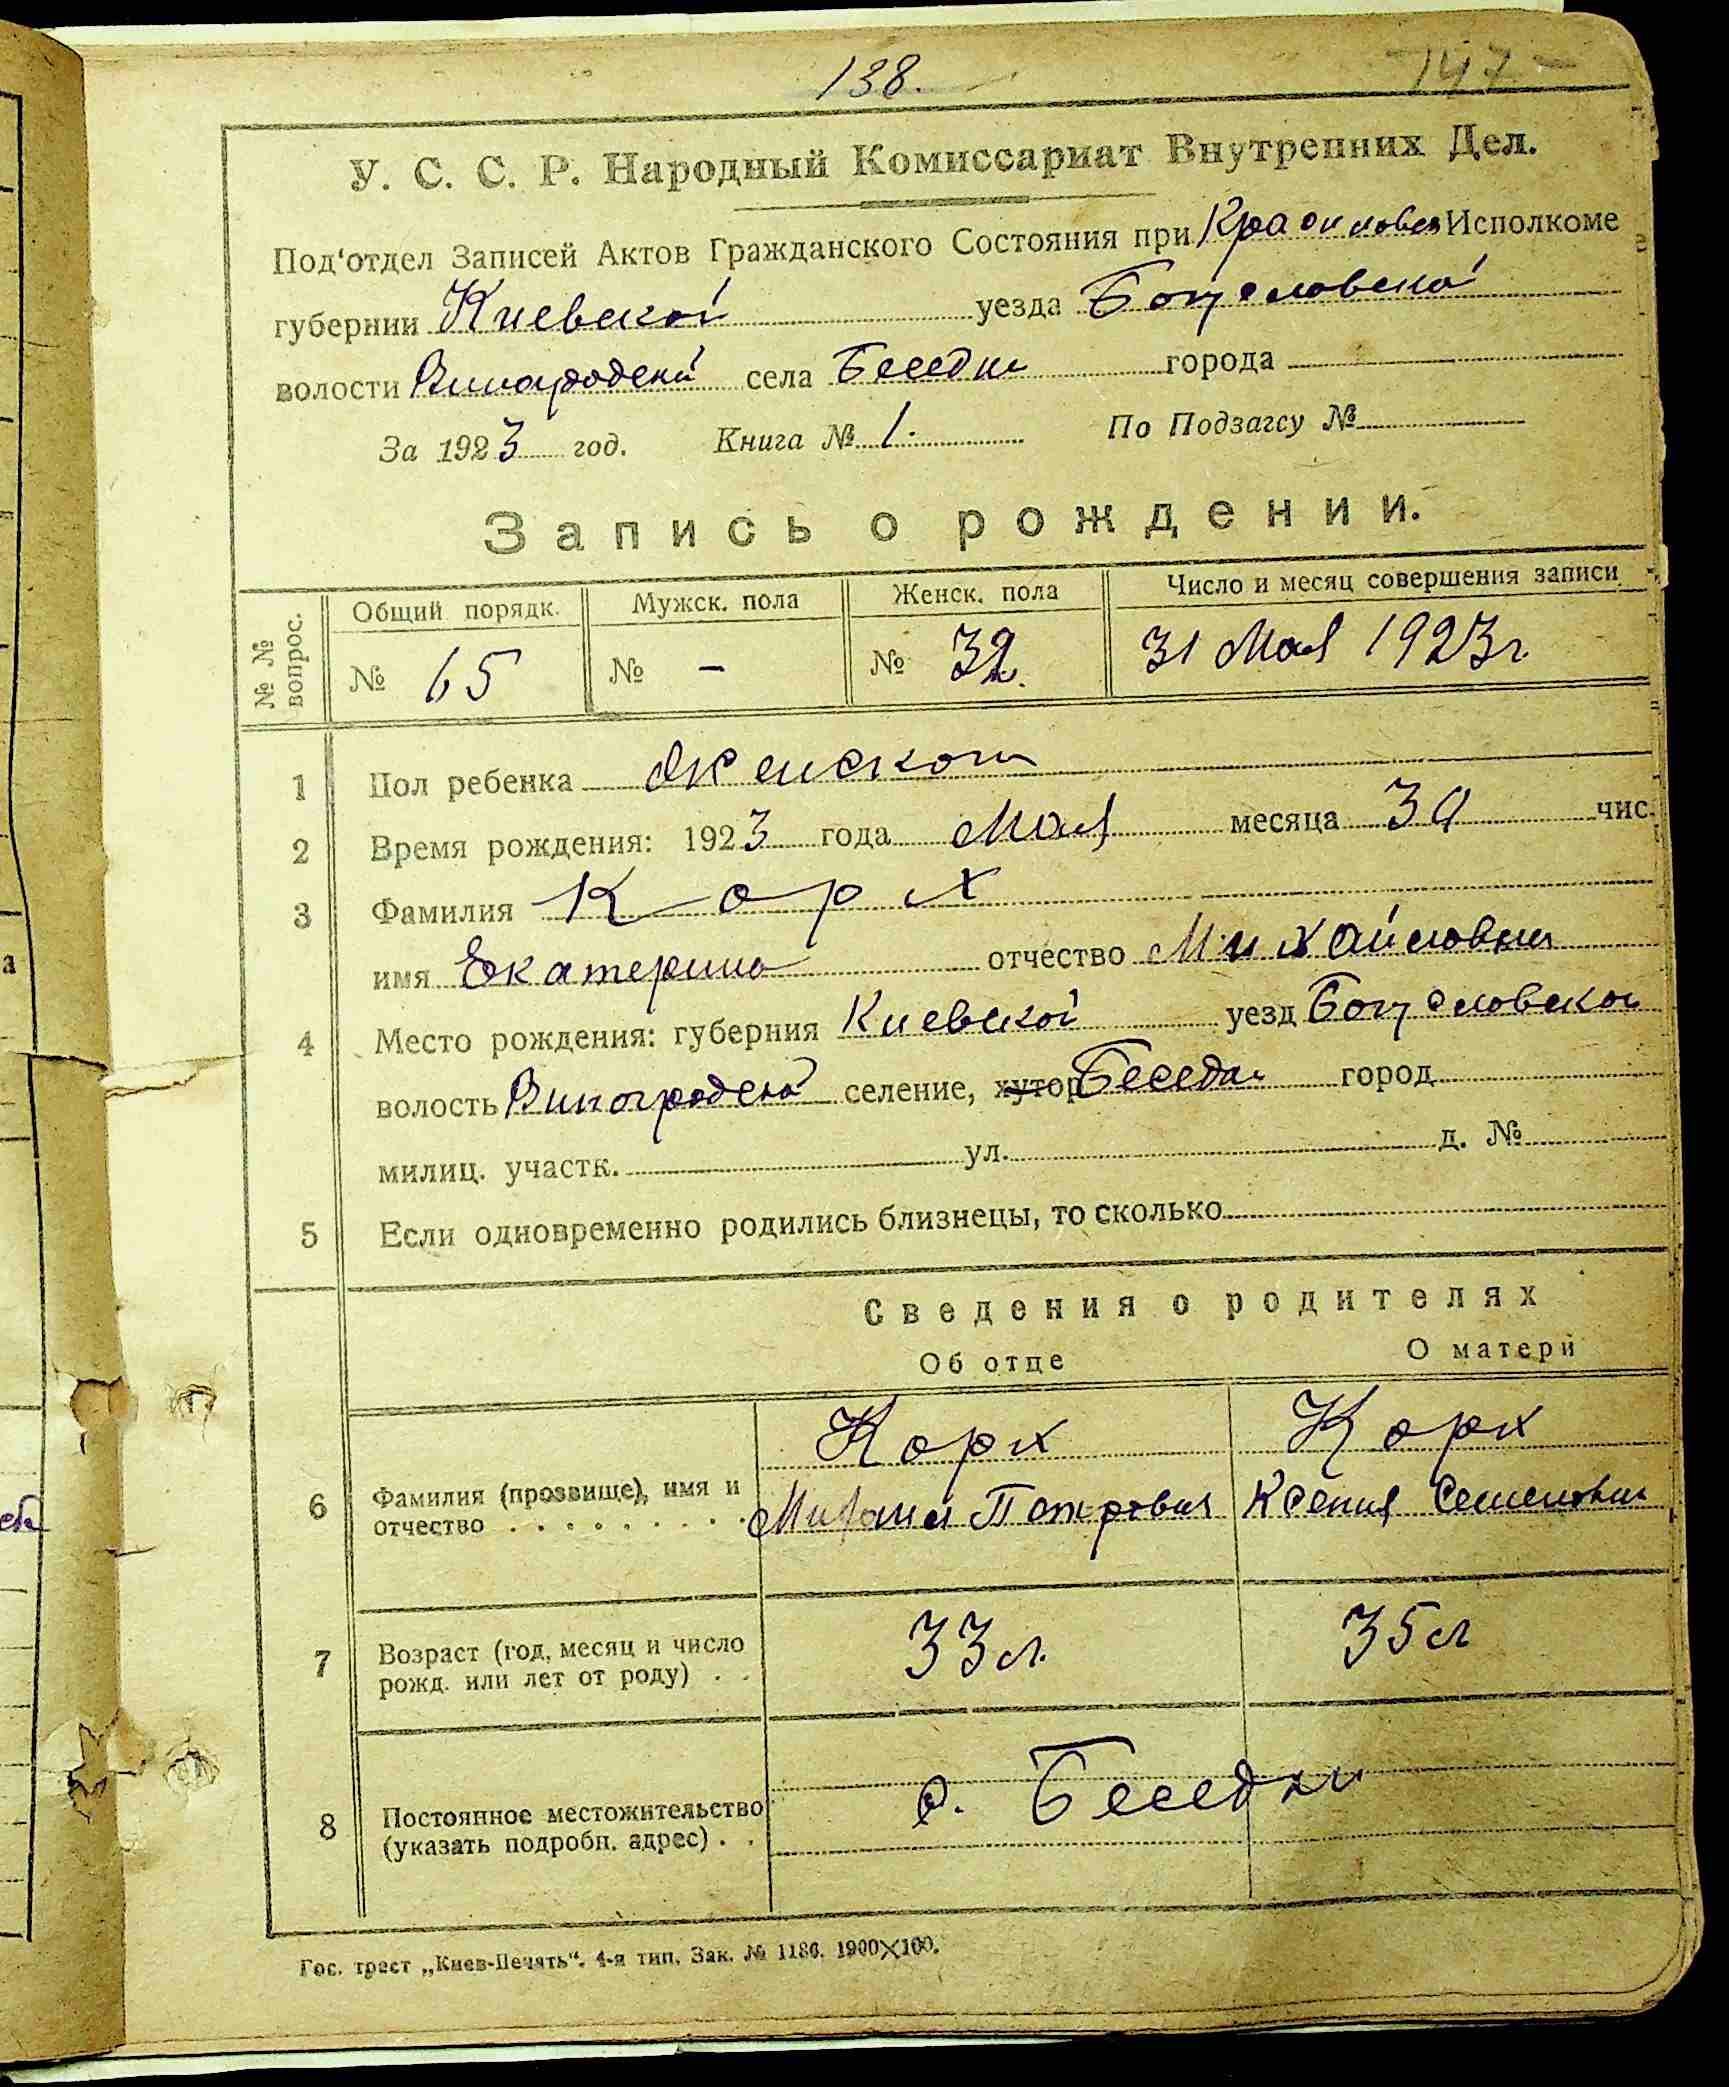 138.
147
У. С. С. Р. Народный Комиссариат Внутренних Дел.
Под'отдел Записей Актов Гражданского Состояния при Исполкоме
губернии Киевской уезда Богуславской
волости Виноградской села Беседки города
За 1923 год. Книга № 1. По Подзагсу №
Запись о рождении.
№ № вопрос. Общий порядк. Мужск. пола Женск. пола Число и месяц совершения записи
№ 65 № - № 32. 31 Мая 1923 г.
1 Пол ребенка Женского
2 Время рождения: 1923 года Мая месяца 30 чис.
3 Фамилия Корх
имя Екатерина отчество Михайловна
4 Место рождения: губерния Киевской уезд Богуславской
волость Виноградской селение, хутор Беседки город
милиц. участк. ул. д. №
5 Если одновременно родились близнецы, то сколько
Сведения о родителях
Об отце О матери
Корх Корх
6 Фамилия (прозвище), имя и
отчество Михаил Петрович Ксения Семеновна
7 Возраст (год, месяц и число
рожд. или лет от роду) 33 л. 35 л
8 Постоянное местожительство
(указать подробн. адрес) с. Беседки
Гос. трест „Киев-Печать“. 4-я тип. Зак. № 1186. 1900×100.